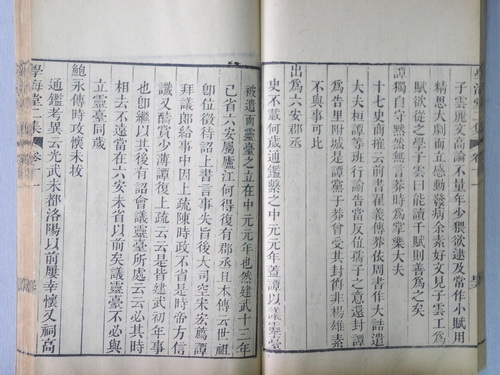 子雲麗文高論不量年少猥欲逮及常作小賦用
精思大劇而立感動發病余素好文見子雲工爲
賦欲從之學子雲曰能讀千賦則善爲之矣
譚獨自守默然無言莽時爲掌樂大夫
十七史商搉云前書翟義傳莽依周書作大誥遣
大夫桓譚等班行諭告當反位孺子之意還封譚
爲告里附城是譚黨于莽曾受其封爵非楊雄素
與事可比
出爲六安郡丞
史不載何歲通鑑繫之中元元年蓋譚以議靈臺
被遣而靈臺之立在中元元年也然建武十三年
已省六安屬廬江何得復有郡丞且本傳云世祖
即位徵待詔上書言事失旨後大司空宋宏薦譚
拜議郎給事中因上疏陳時政不省是時帝方信
讖又酬賞少薄譚復上疏云云是皆建武初年事
也卽繼以其後有詔會議靈臺所處云云
相去不遠當在六安未省以前矣議靈臺不必與
立靈臺同歲
鮑永傳時攻懷未拔
通鑑考異云光武未都洛陽以前屢幸懷又祠高
學海堂二集 卷十一